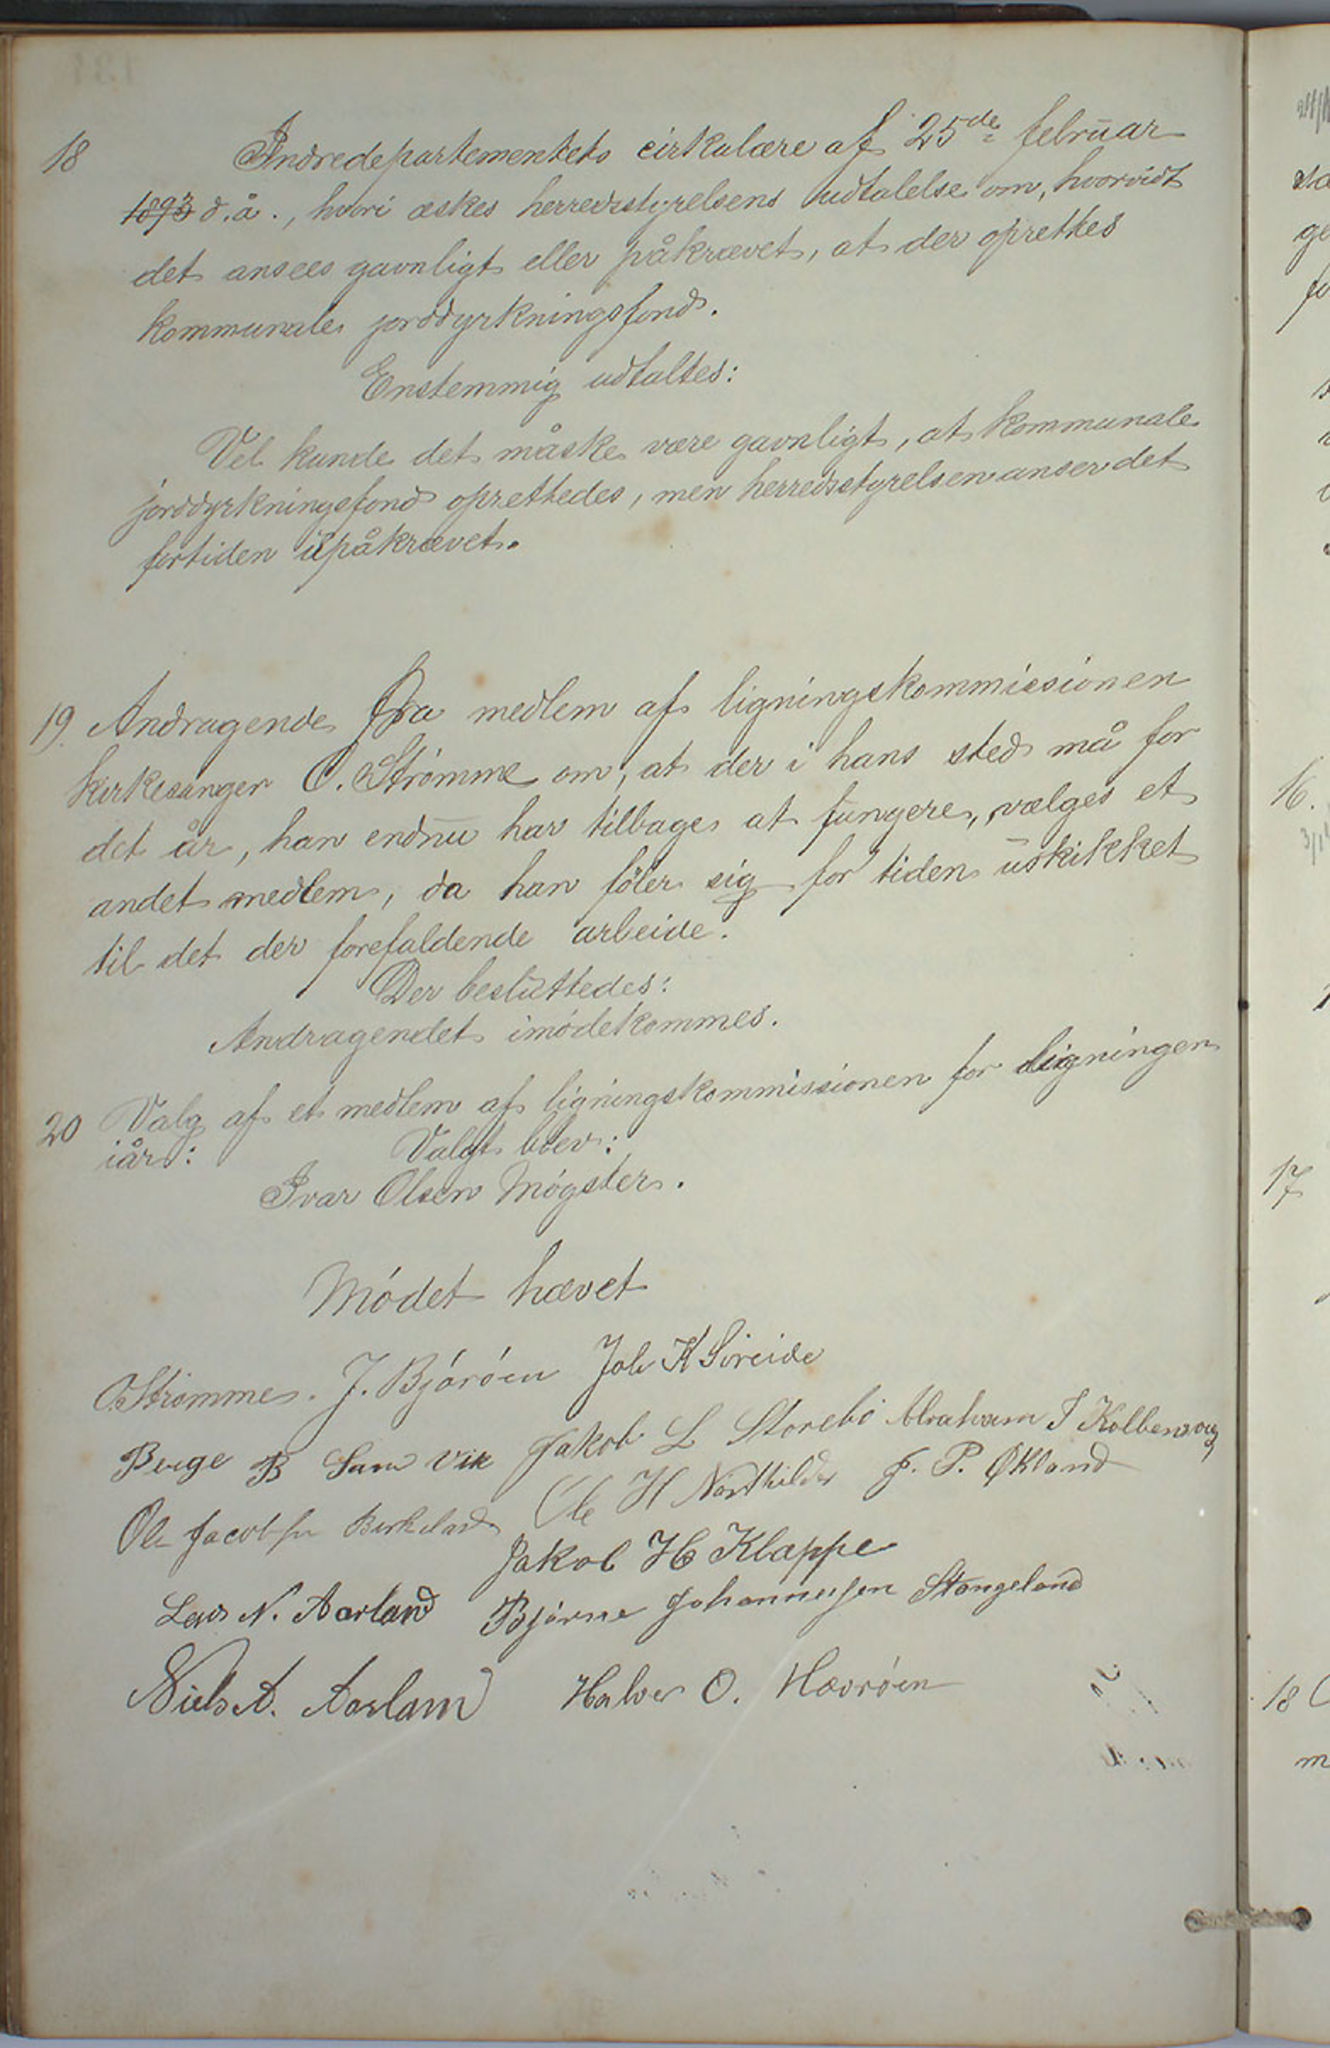 18 Indredepartementets cirkulære af 25de februar
1893 d. å., hvori æskes herredsstyrelsens udtalelse om, hvorvidt
det ansees gavnligt eller påkrævet, at der oprettes
kommunale jorddyrkningsfond.
Enstemmig udtaltes:
Vel kunde det måske være gavnligt, at kommunale
jorddyrkningsfond oprettedes, men herredsstyrelsen anser det
fortiden upåkrævet.
19. Andragende fra medlem af ligningskommissionen
kirkesanger O. Strømme om, at der i hans sted må for
det år, han endnu har tilbage at fungere, vælges et
andet medlem, da han föler sig for tiden uskikket
til det der forefaldende arbeide.
Der besluttedes:
Andragendet imódekommes.
20 Valg af et medlem af ligningskommissionen for ligningen
iår: Valgt blev:
Ivar Olsen Mógster.
Módet hævet
O. Strømme. J. Bjóróen Joh K Söreide
Berge B Sam vik Jakob L Storebö Abraham J Kolbensvg
Ole Jacobsen Birkeland Ole H Nordtulder J. P. Økland
Jakob H Klappe
Lars N. Aarland Bjórne Johannessen Stangeland
Niels A. Aarlan Halvor O. Hævróen
16.
17
18